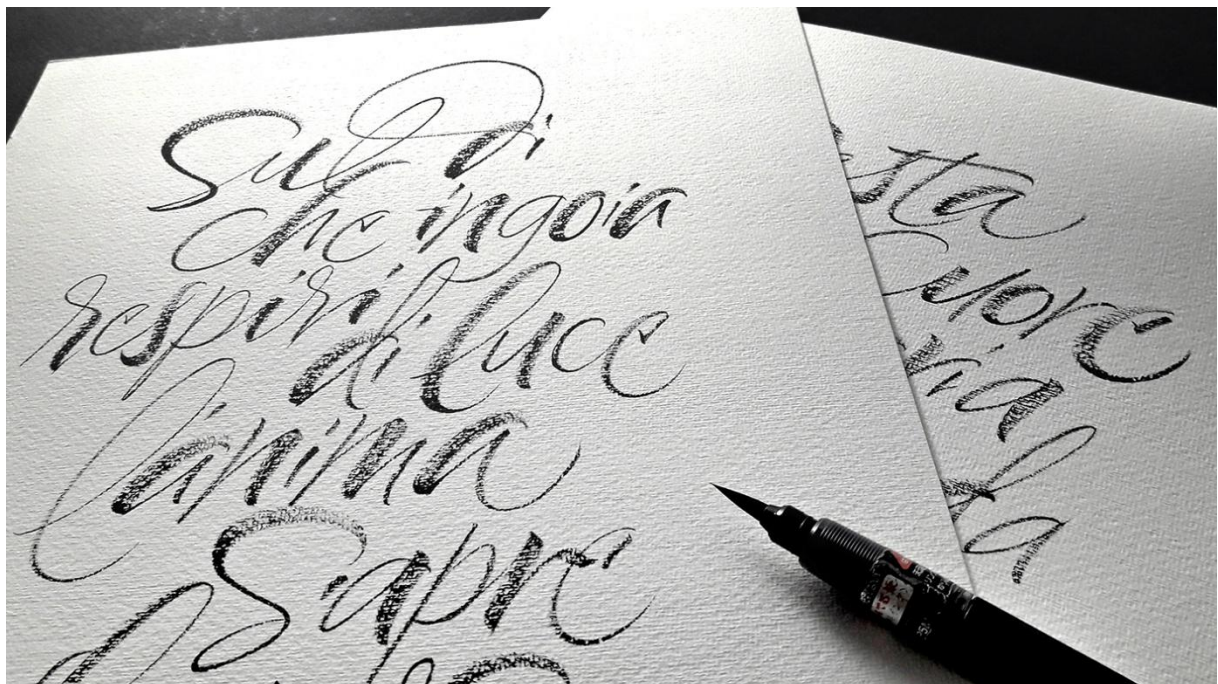 Sul Di
che ingoia
respiri
di luce
l'anima
S'apre
sta
Cuore